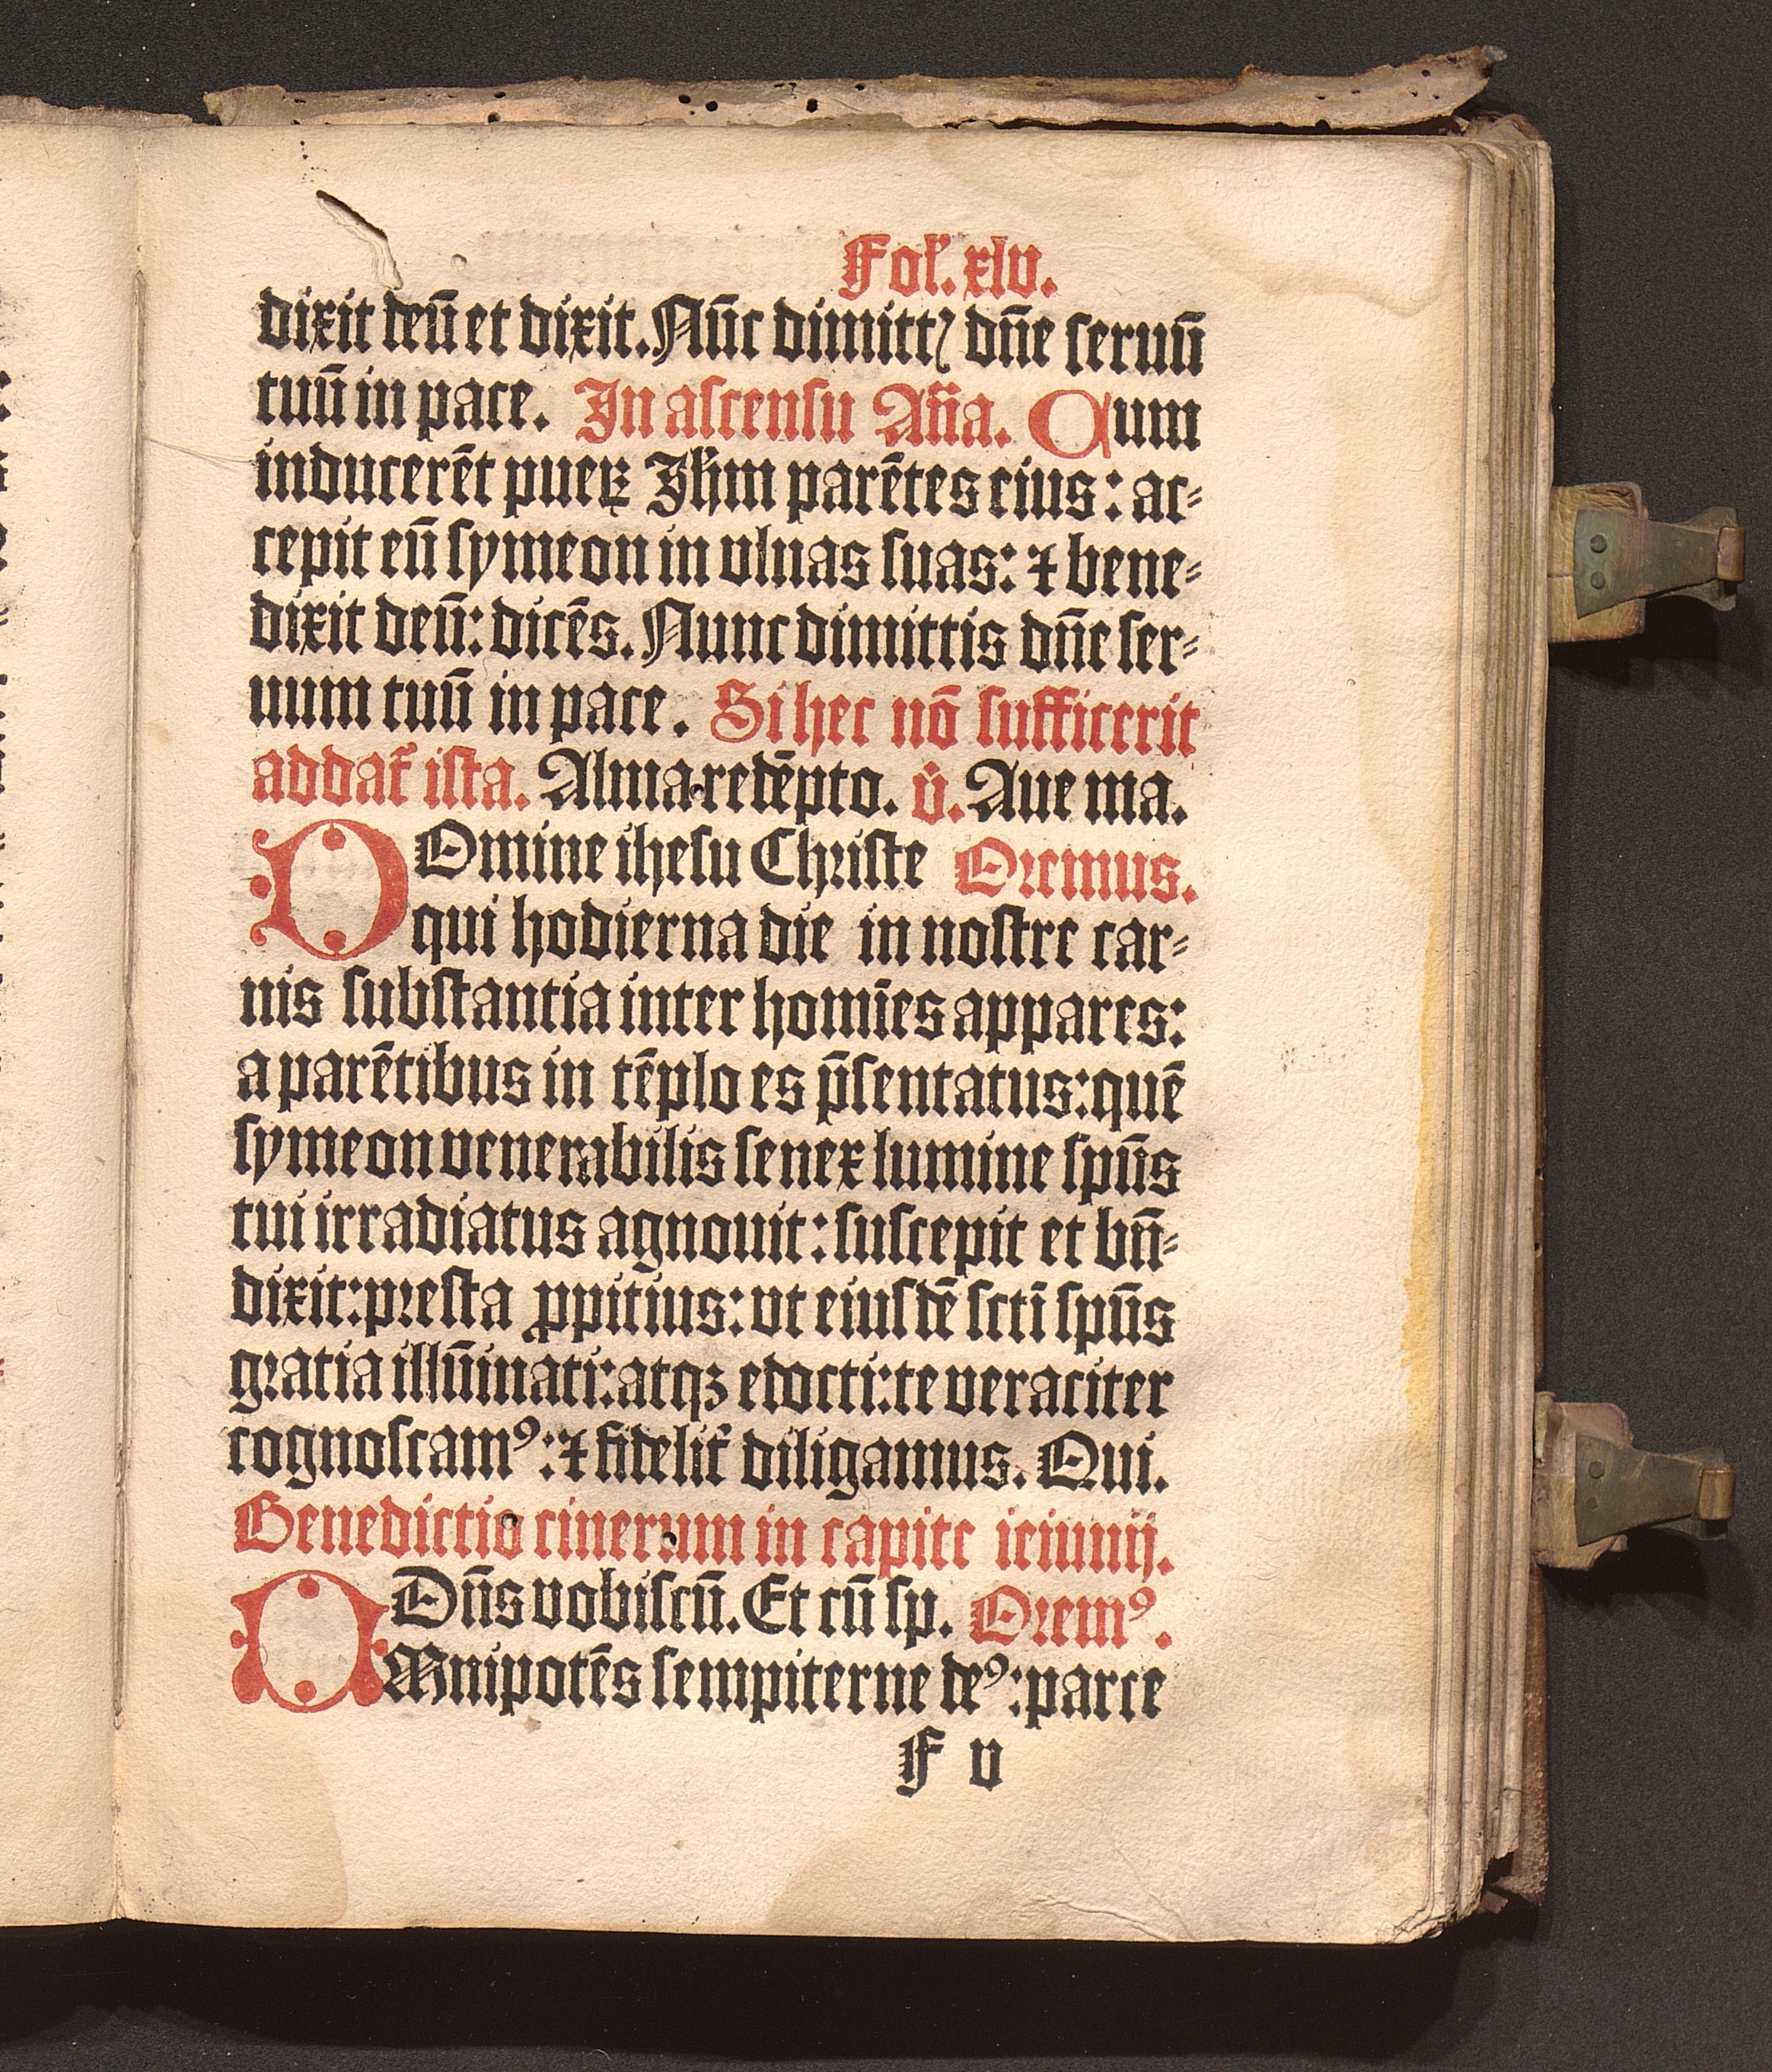 Fol'. xlv.
dixit deū et dixit. Nūc dimittꝭ dn̄e seruū
tuū in pace. In ascensu An̄a. Cum
inducerēt pueꝝ Jhm̄ parētes eius: ac⸗
cepit eū symeon in vlnas suas: ⁊ bene⸗
dixit deū: dicēs. Nunc dimittis dn̄e ser⸗
uum tuū in pace. Si hec nō sufficerit
addat᷑ ista. Alma redēpto. v̊. Aue ma.
DOmine ihesu Christe Oremus.
qui hodierna die in nostre car⸗
nis substantia inter homīes appares:
a parētibus in tēplo es p̄sentatus: quē
symeon venerabilis senex lumine spūs
tui irradiatus agnouit: suscepit et bn̄⸗
dixit: presta ꝓpitius: vt eiusdē scti̅ spūs
gratia illūinati: atqꝫ edocti: te veraciter
cognoscamꝰ: ⁊ fidelit᷑ diligamus. Qui.
Benedictio cinerum in capite ieiunij.
Dn̄s vobiscū. Et cū sp. Oremꝰ.
OMnipotēs sempiterne deꝰ: parce
F v